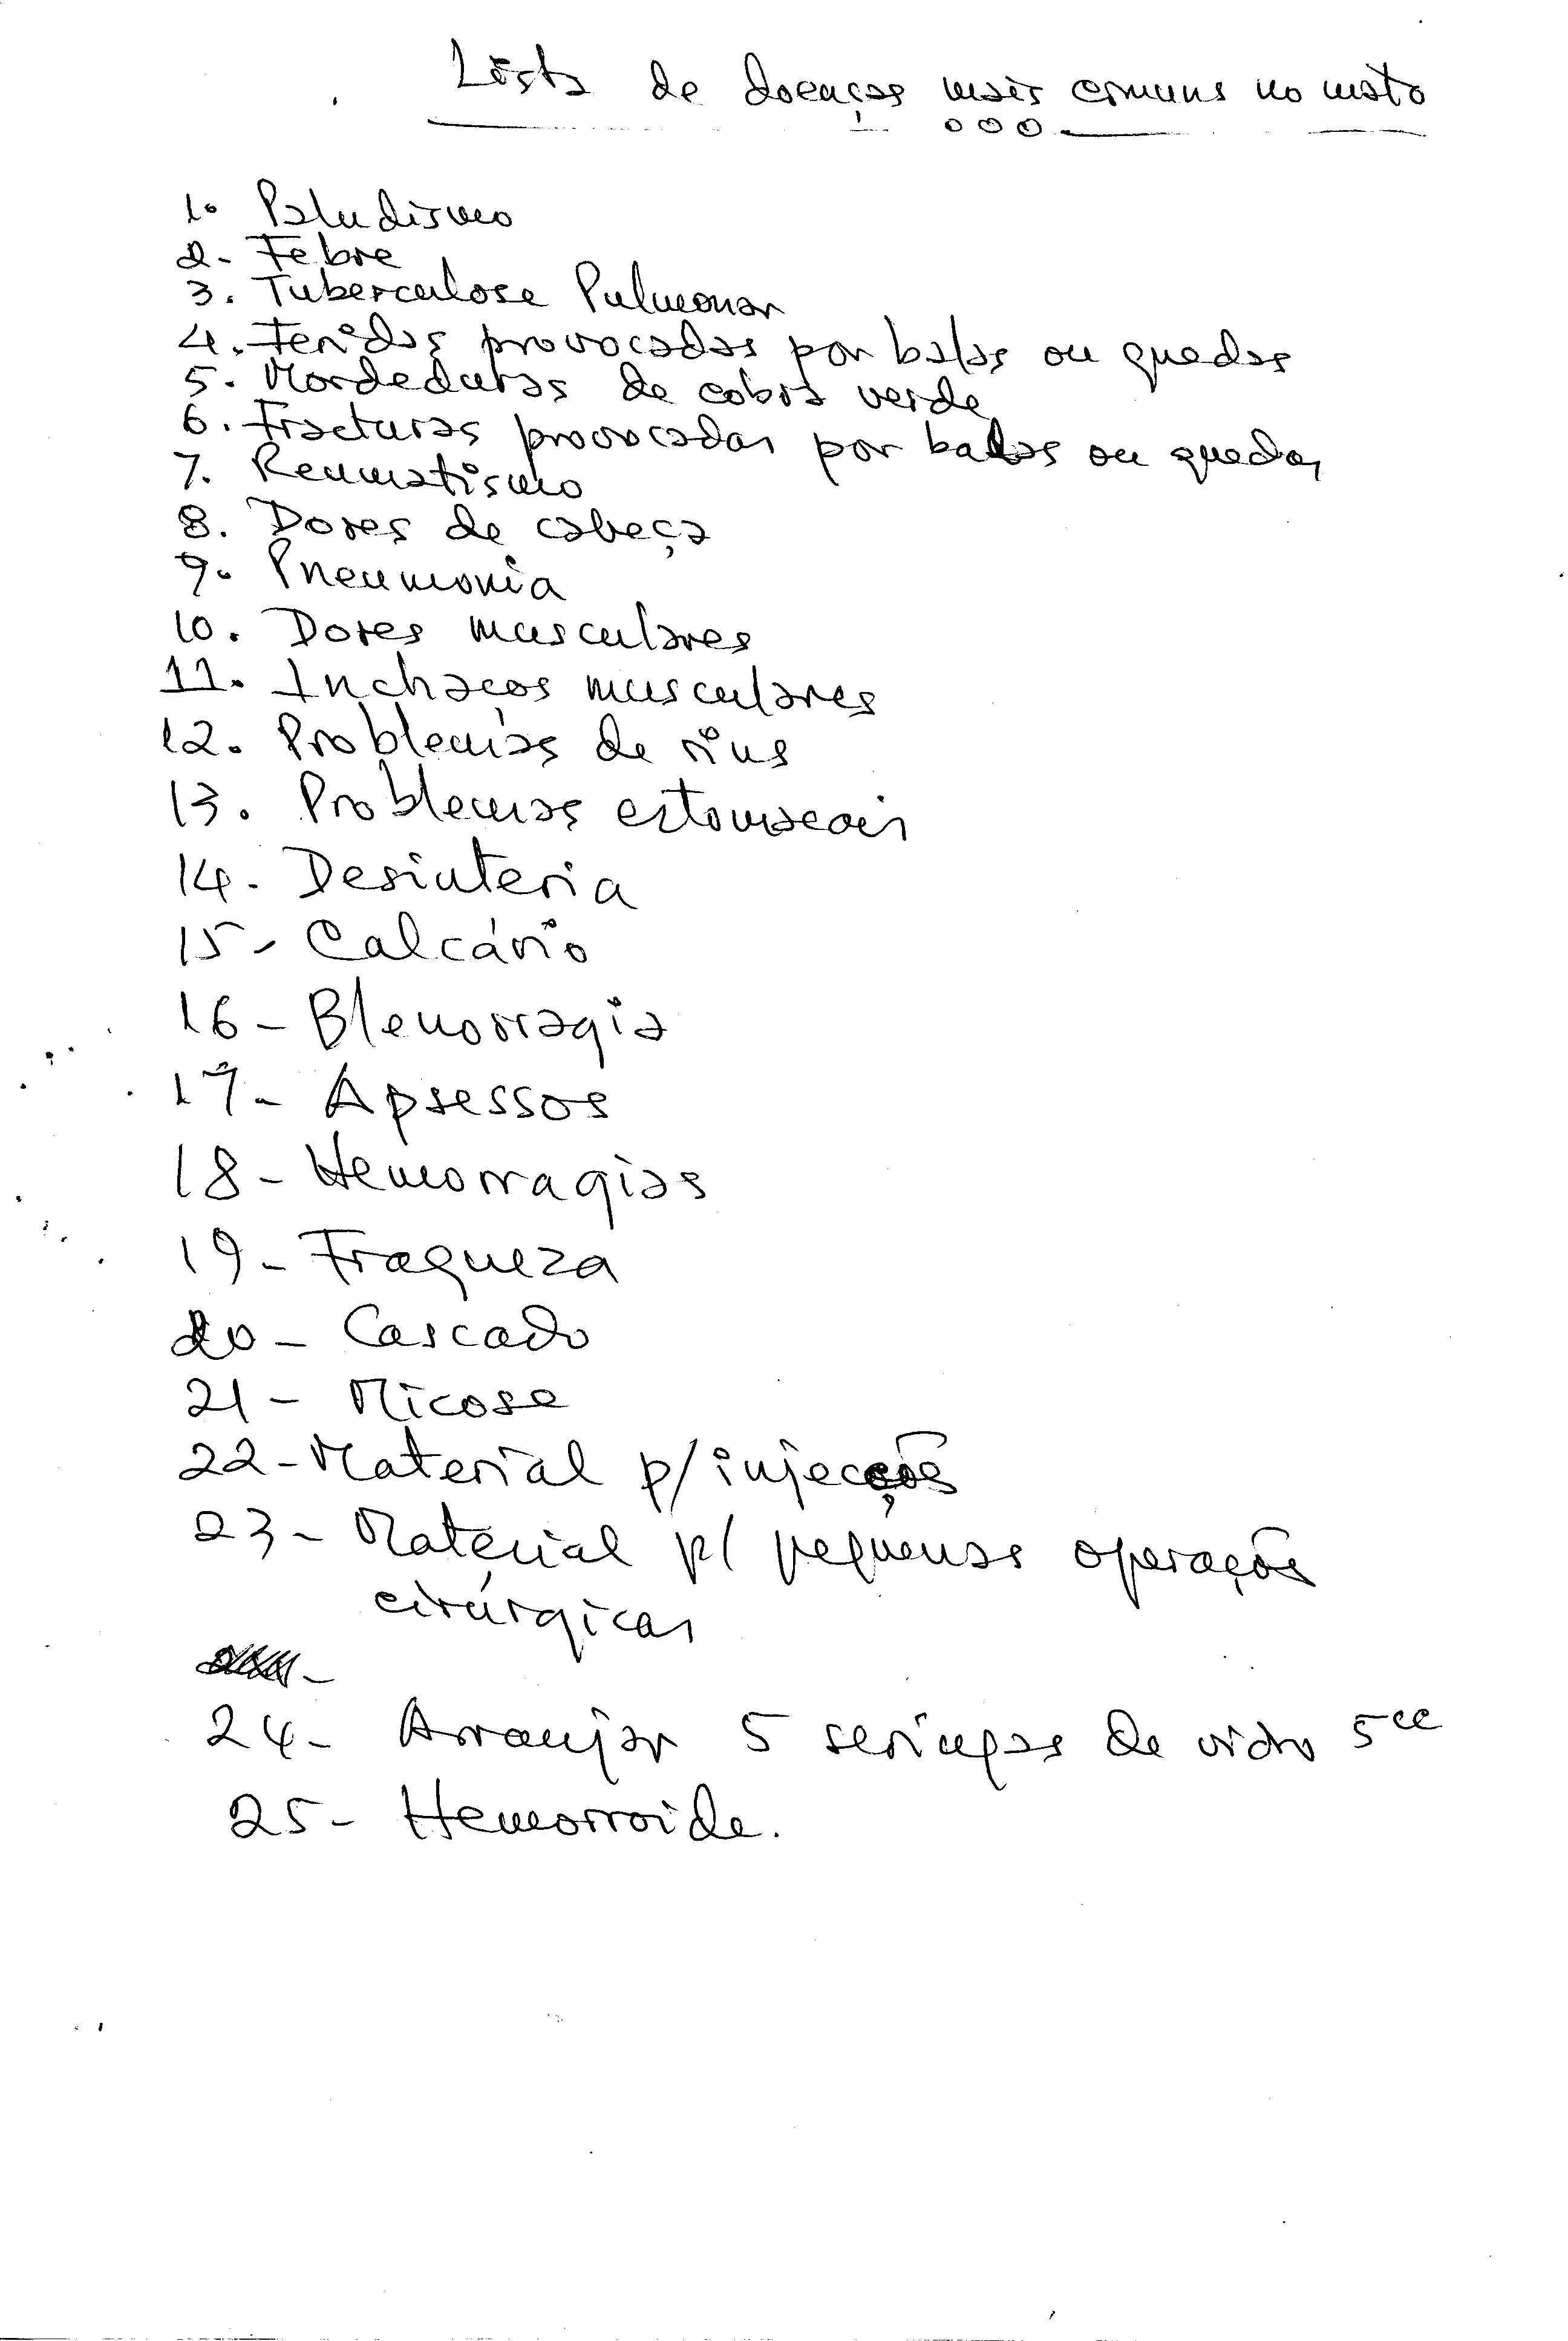 Lista de doenças mais comuns no mato
ooo
1. Paludismo
2- Febre
3. Tuberculose Pulmonar
4. Feridas provocadas por balas ou quedas
5. Mordeduras de cobra verde
6. Fracturas provocadas por balas ou quedas
7. Reumatismo
8. Dores de cabeça
9. Pneumonia
10. Dores musculares
11. Inchaços musculares
12. Problemas de rins
13. Problemas estomacais
14. Desinteria
15- Calcário
16- Blenorragia
17- Apsessos
18- Hemorragias
19- Fraqueza
20- Cascado
21- Micose
22- Material p/ injecções
23- Material p/ pequenas operações
cirúrgicas
24- Arranjar 5 seringas de vidro 5cc
25- Hemorroide.